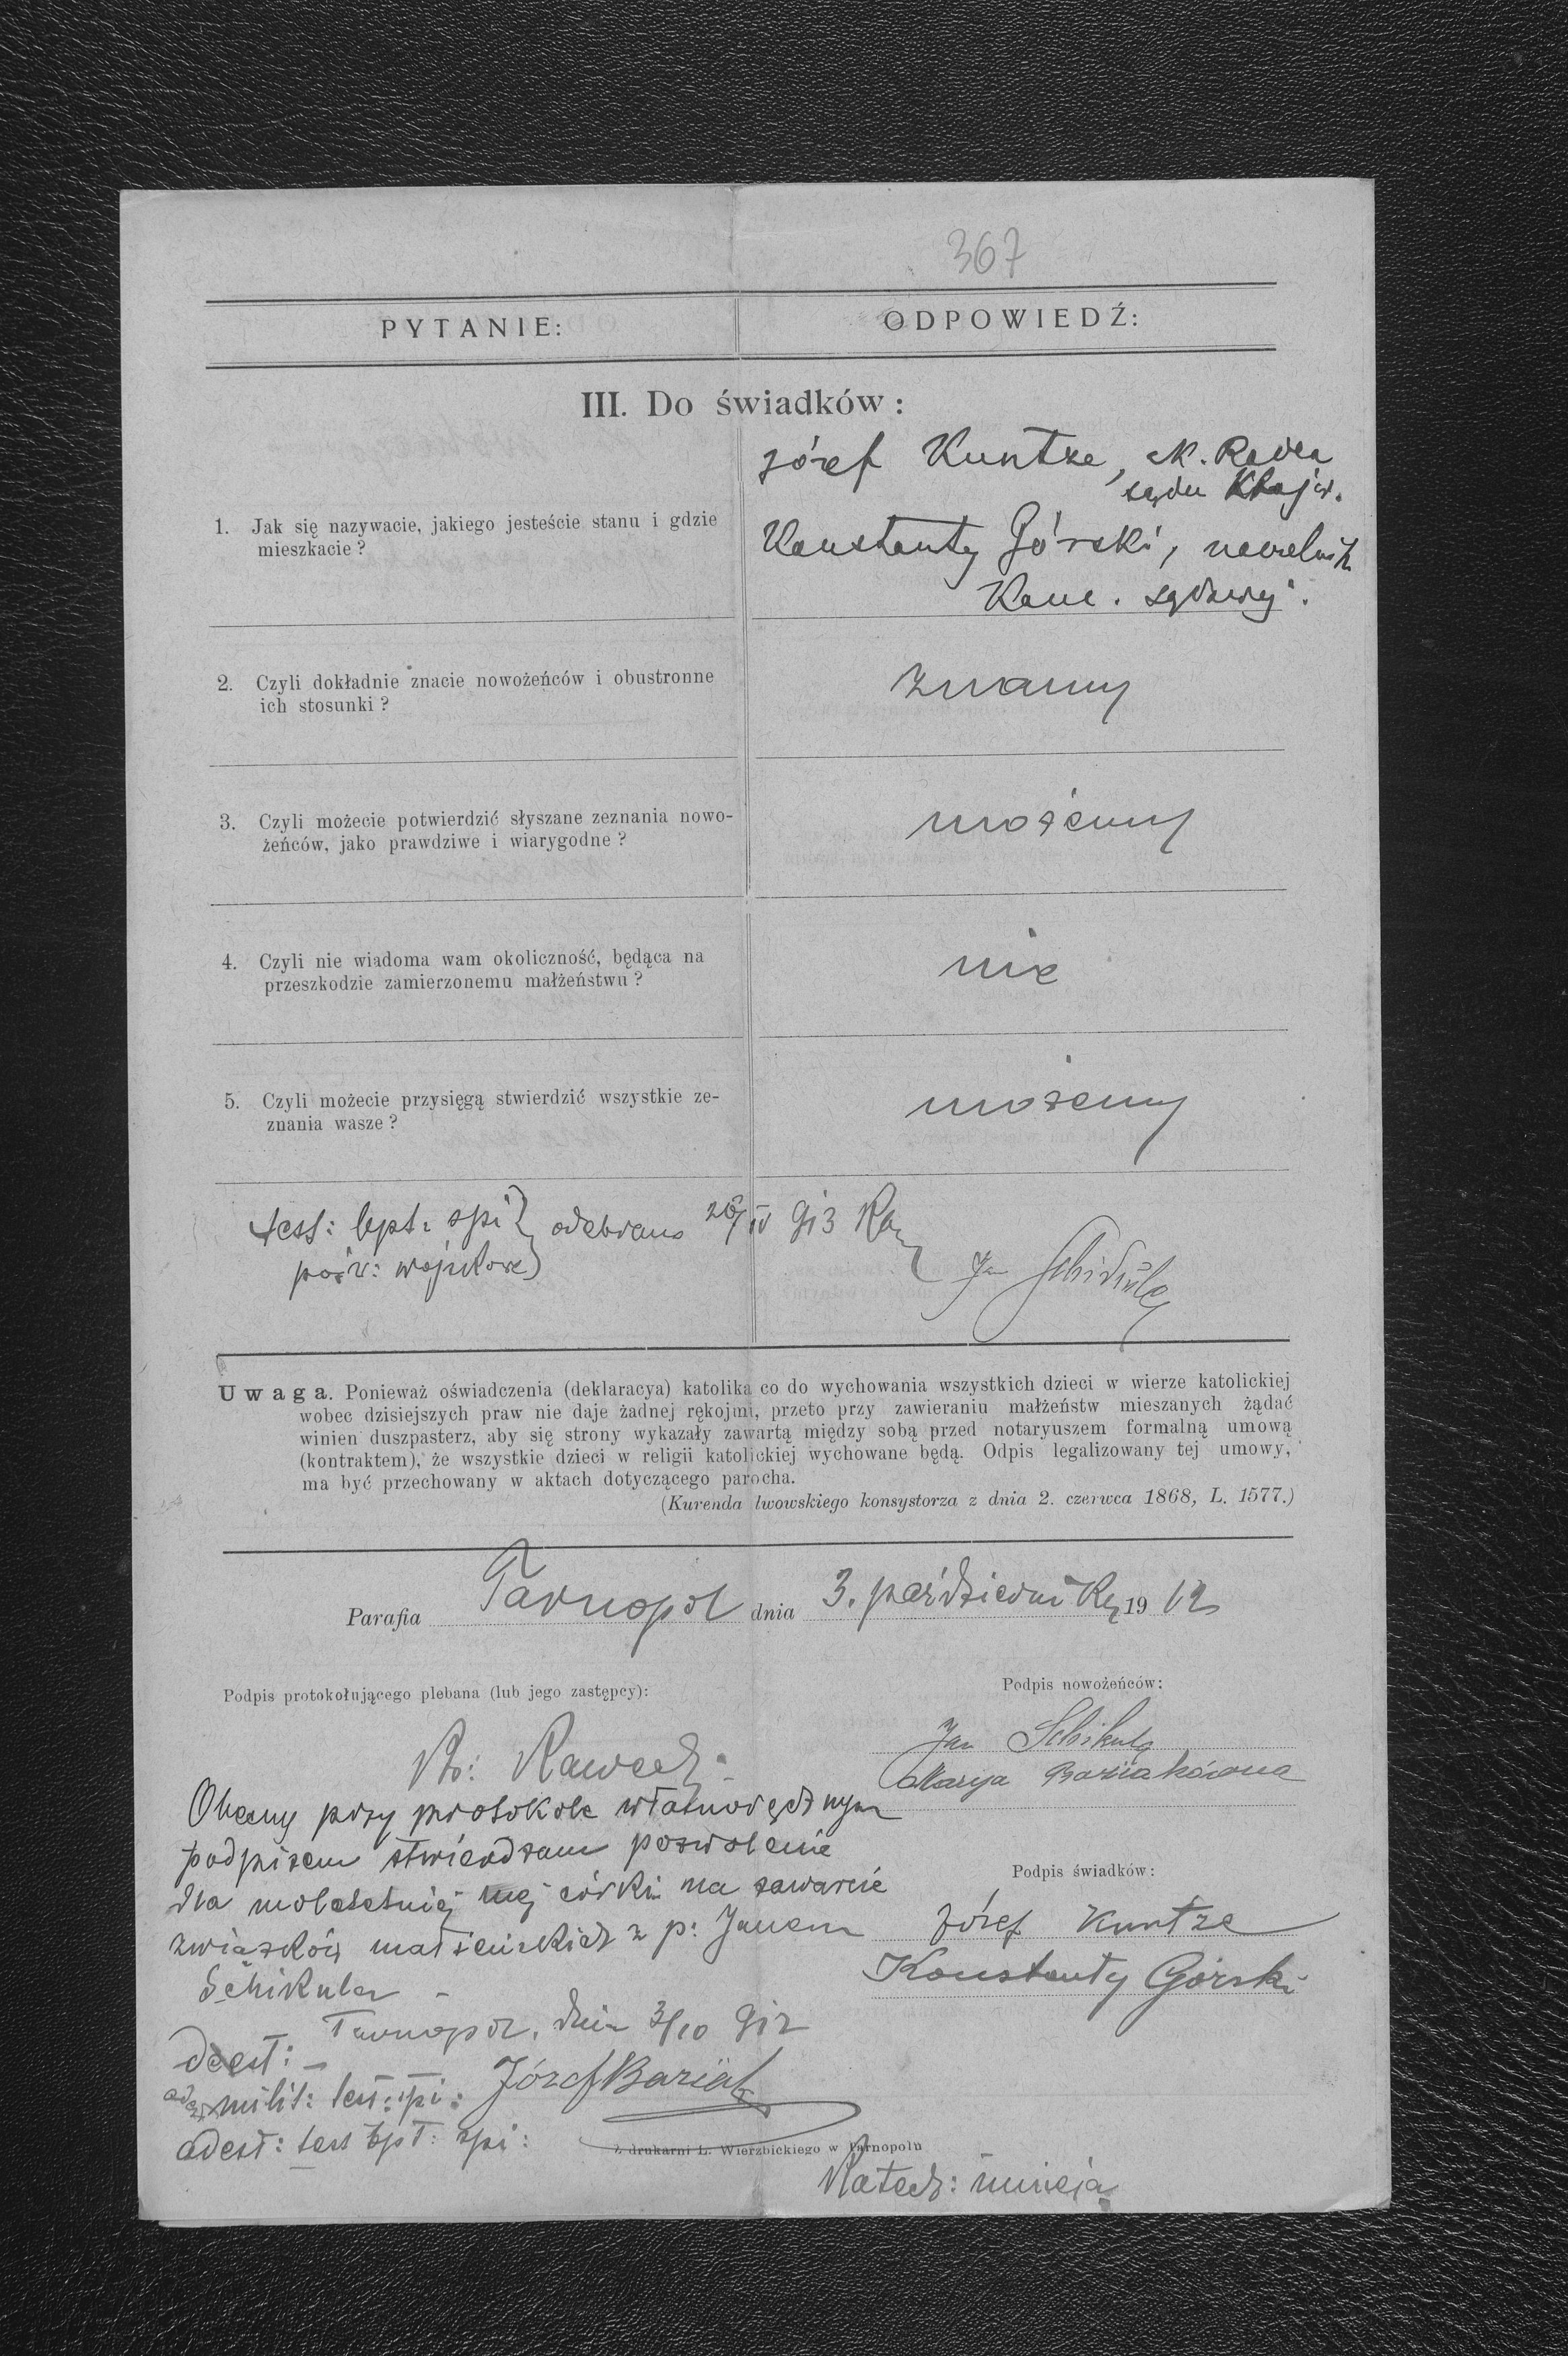 367
PYTANIE:
ODPOWIEDŹ:
III. Do świadków:
1. Jak się nazywacie, jakiego jesteście stanu i gdzie
mieszkacie?
Józef Kuntze, ck. Radca
sądu Kraj.
Konstanty Górski, naczelnik
Kanc. sądowej.
2. Czyli dokładnie znacie nowożeńców i obustronne
ich stosunki?
znamy
3. Czyli możecie potwierdzić słyszane zeznania nowo-
żeńców, jako prawdziwe i wiarygodne?
możemy
4. Czyli nie wiadoma wam okoliczność, będąca na
przeszkodzie zamierzonemu małżeństwu?
nie
5. Czyli możecie przysięgą stwierdzić wszystkie ze-
znania wasze?
możemy
test: bpt: spi } odebrano 913
wojskowe Jan Schikula
Uwaga. Ponieważ oświadczenia (deklaracya) katolika co do wychowania wszystkich dzieci w wierze katolickiej
wobec dzisiejszych praw nie daje żadnej rękojmi, przeto przy zawieraniu małżeństw mieszanych żądać
winien duszpasterz, aby się strony wykazały zawartą między sobą przed notaryuszem formalną umową
(kontraktem), że wszystkie dzieci w religii katolickiej wychowane będą. Odpis legalizowany tej umowy,
ma być przechowany w aktach dotyczącego parocha.
(Kurenda lwowskiego konsystorza z dnia 2. czerwca 1868, L. 1577.)
Parafia Tarnopol dnia 3. października 1912
Podpis protokołującego plebana (lub jego zastępcy):
Podpis nowożeńców:
Jan Schikula
Marya Baziakówna
Obecny przy protokole własnoręcznym
podpisem stwierdzam pozwolenie
dla małoletniej mej córki na zawarcie
związków małżeńskich z p: Janem
Schikula
Tarnopol, dnia 3/10 912
Józef Baziak
Podpis świadków:
Józef Kuntze
Konstanty Górski
deest:
milit: test: spi:
adest: test bpt: spi:
Z drukarni L. Wierzbickiego w Tarnopolu